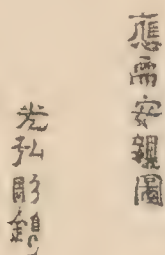 應需安親圖
光弘彫